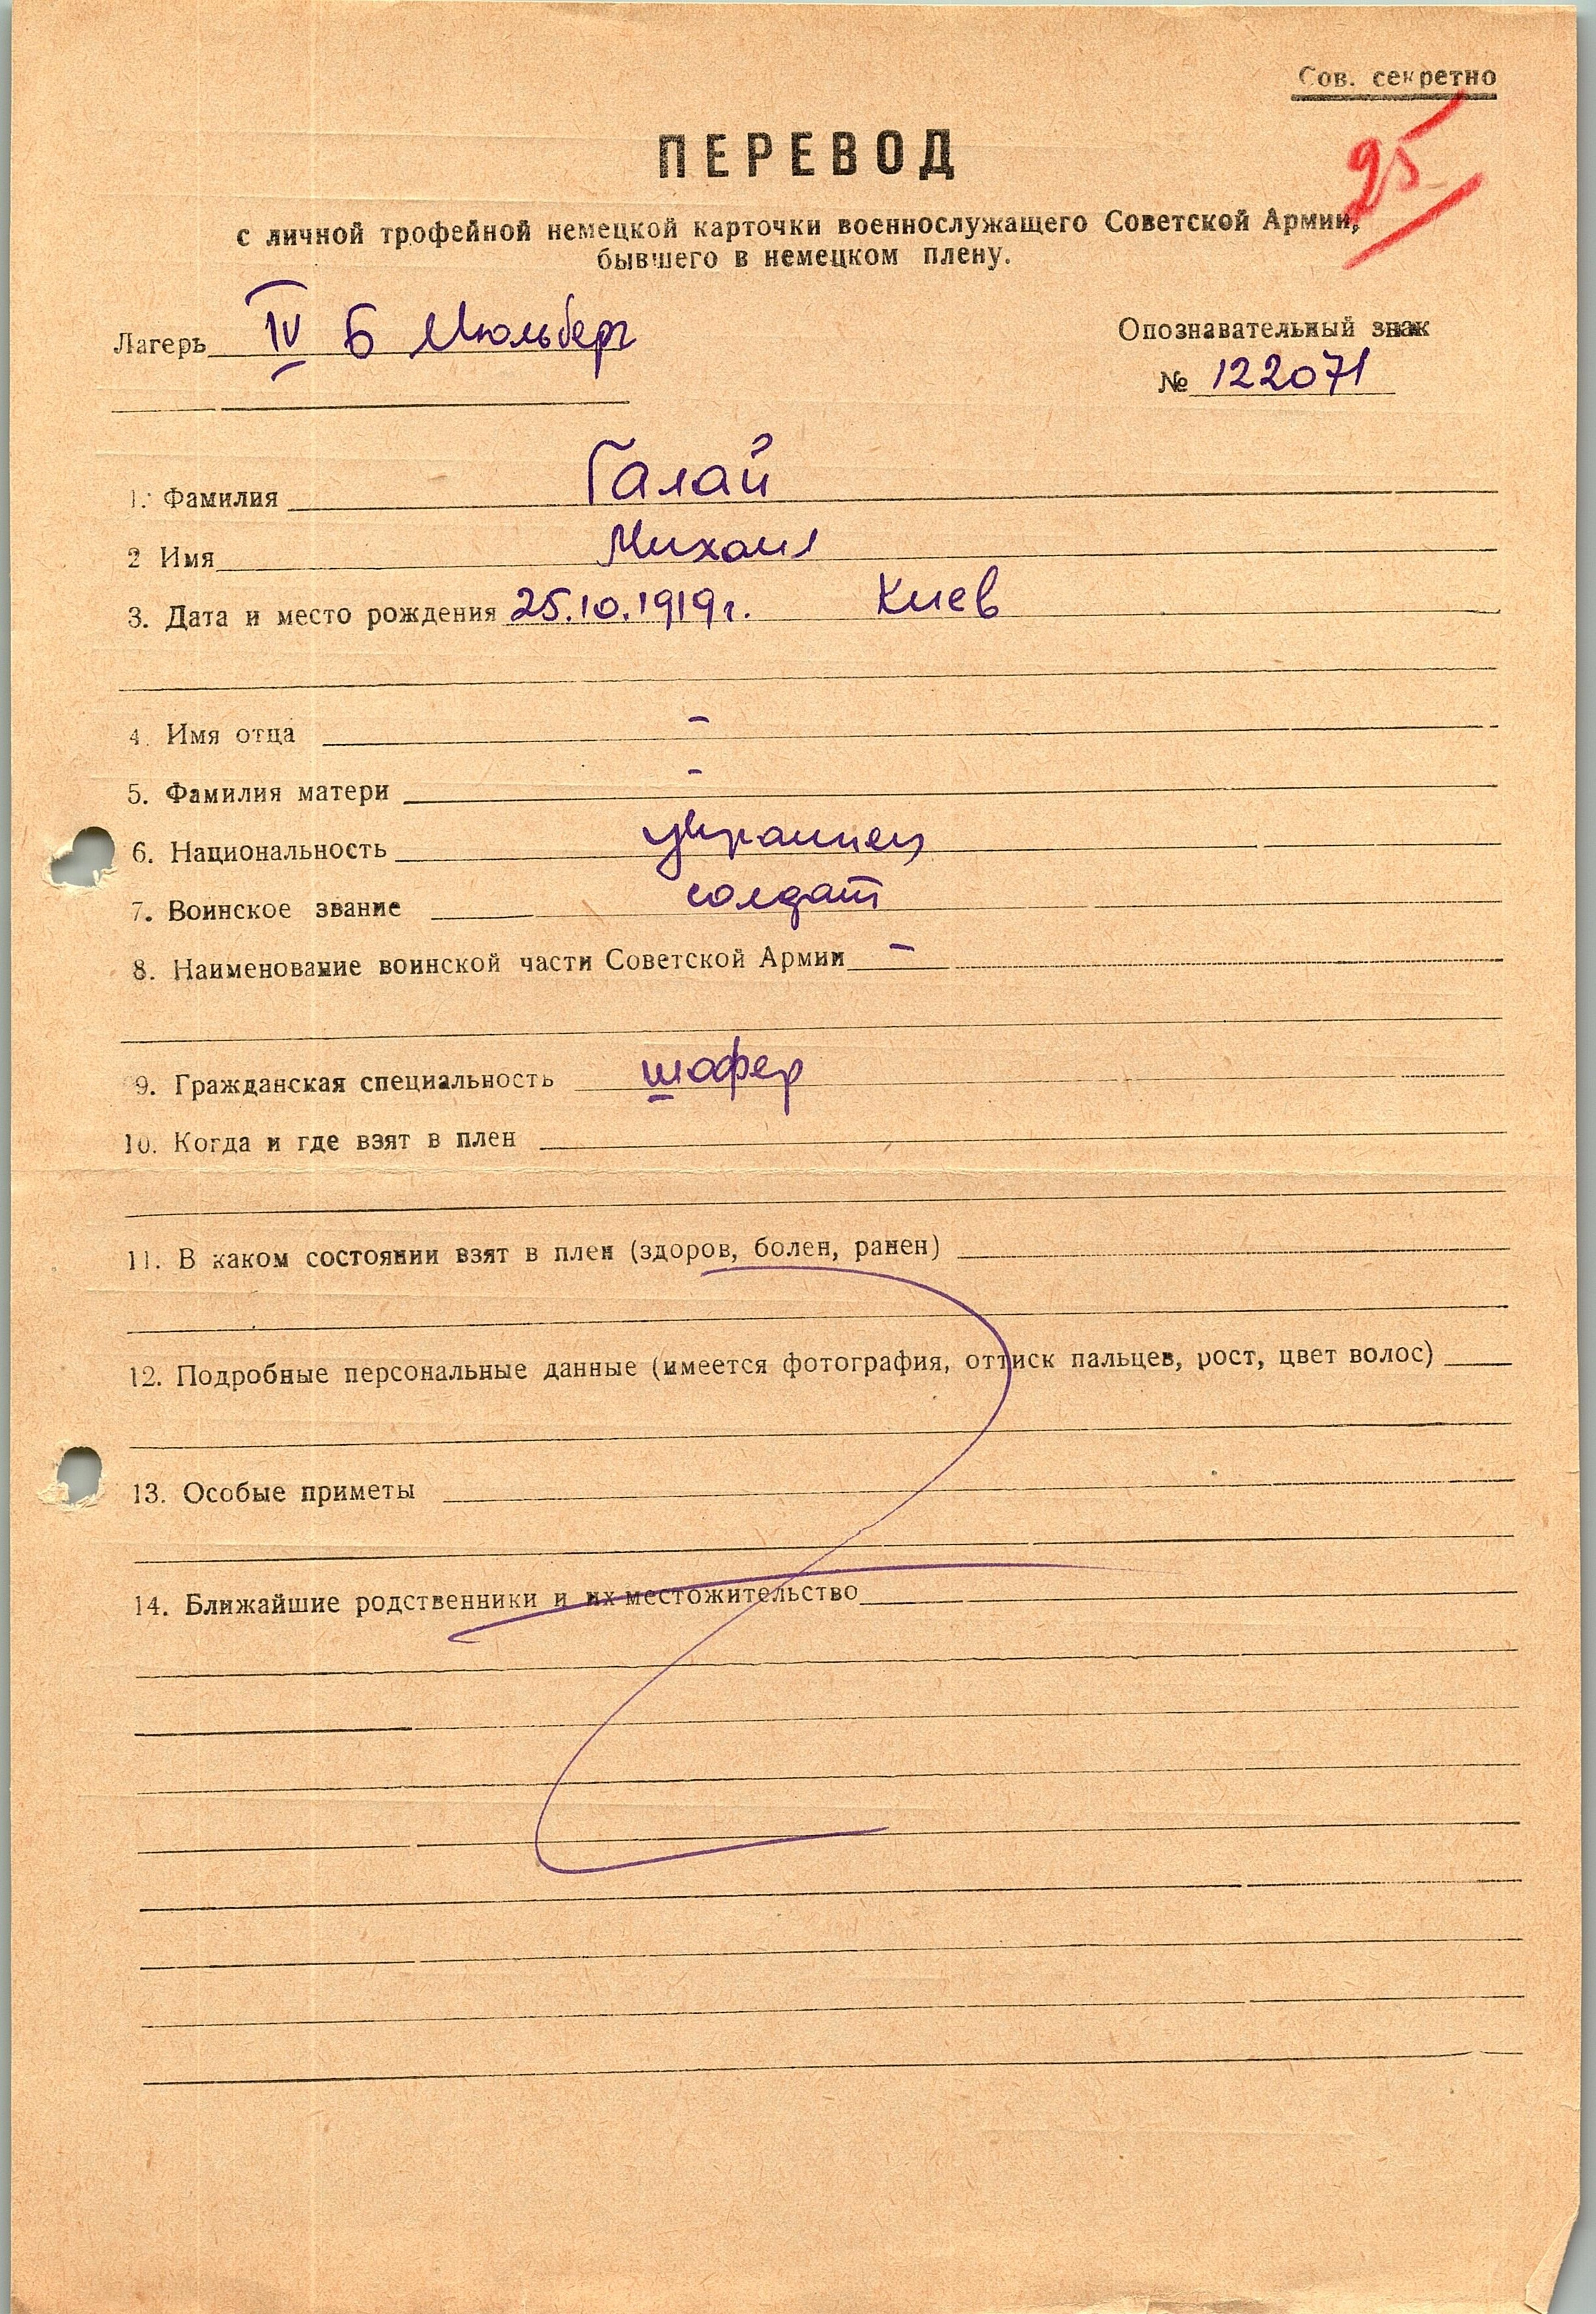 Сов. секретно
25
ПЕРЕВОД
с личной трофейной немецкой карточки военнослужащего Советской Армии,
бывшего в немецком плену.
Лагерь IV Б Мюльберг
Опознавательный знак
№ 122071
1. Фамилия Галай
2 Имя Михаил
3. Дата и место рождения 25.10.1919г. Киев
4. Имя отца –
5. Фамилия матери –
6. Национальность украинец
7. Воинское звание солдат
8. Наименование воинской части Советской Армии –
9. Гражданская специальность шофер
10. Когда и где взят в плен
11. В каком состоянии взят в плен (здоров, болен, ранен)
12. Подробные персональные данные (имеется фотография, оттиск пальцев, рост, цвет волос)
13. Особые приметы
14. Ближайшие родственники и их местожительство